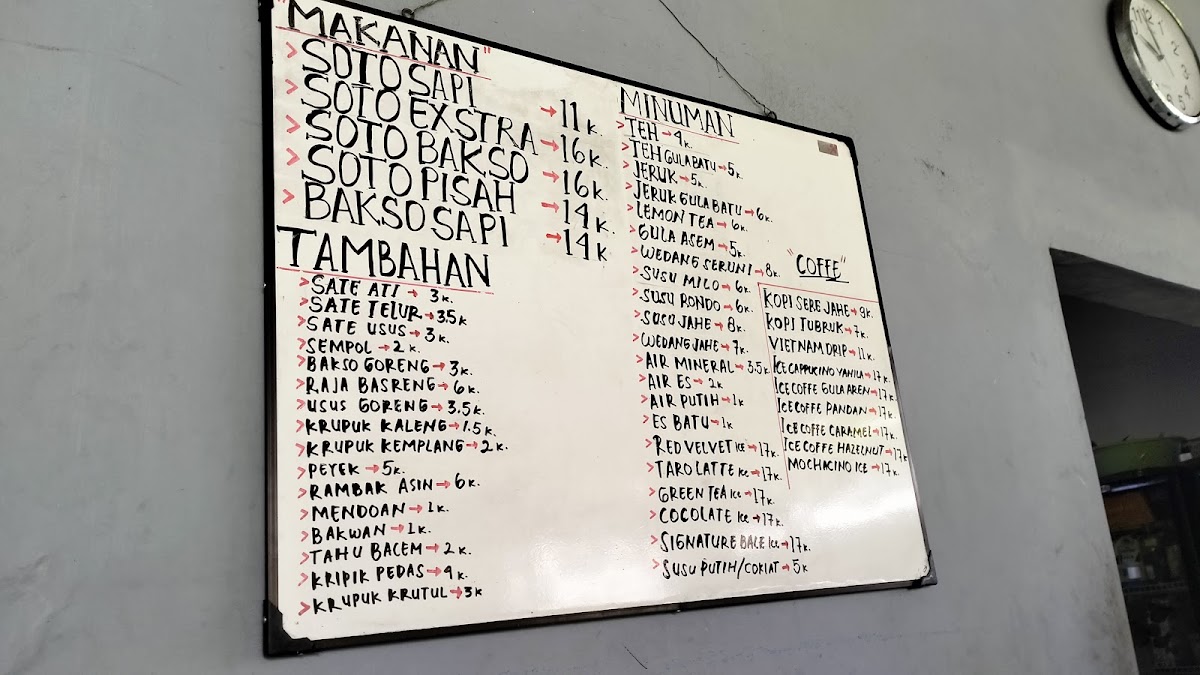 "MAKANAN"
> SOTO SAPI → 11 K.
> SOTO EXSTRA → 16 K.
> SOTO BAKSO → 16 K.
> SOTO PISAH → 14 K.
> BAKSO SAPI → 14 K
TAMBAHAN
> SATE ATI → 3 K.
> SATE TELUR → 3.5 K
> SATE USUS → 3 K.
> SEMPOL → 2 K.
> BAKSO GORENG → 3 K.
> RAJA BASRENG → 6 K.
> USUS GORENG → 3.5 K.
> KRUPUK KALENG → 1.5 K.
> KRUPUK KEMPLANG → 2 K.
> PEYEK → 5 K.
> RAMBAK ASIN → 6 K.
> MENDOAN → 1 K.
> BAKWAN → 1 K.
> TAHU BACEM → 2 K.
> KRIPIK PEDAS → 4 K.
> KRUPUK KRUTUL → 3 K
MINUMAN
> TEH → 4 K.
> TEH GULA BATU → 5 K.
> JERUK → 5 K.
> JERUK GULA BATU → 6 K.
> LEMON TEA → 6 K.
> GULA ASEM → 5 K.
> WEDANG SERUNI → 8 K.
> SUSU MILO → 6 K.
> SUSU RONDO → 6 K.
> SUSU JAHE → 8 K.
> WEDANG JAHE → 7 K.
> AIR MINERAL → 3.5 K.
> AIR ES → 2 K
> AIR PUTIH → 1 K
> ES BATU → 1 K
> RED VELVET ICE → 17 K.
> TARO LATTE ICE → 17 K.
> GREEN TEA ICE → 17 K.
> COCOLATE ICE → 17 K.
> SIGNATURE BALE ICE → 17 K.
> SUSU PUTIH/COKLAT → 5 K
"COFFE"
KOPI SERE JAHE → 9 K.
KOPI TUBRUK → 7 K.
VIETNAM DRIP → 11 K.
ICE CAPPUCINO VANILA → 17 K.
ICE COFFE GULA AREN → 17 K.
ICE COFFE PANDAN → 17 K.
ICE COFFE CARAMEL → 17 K.
ICE COFFE HAZELNUT → 17 K
MOCHACINO ICE → 17 K.